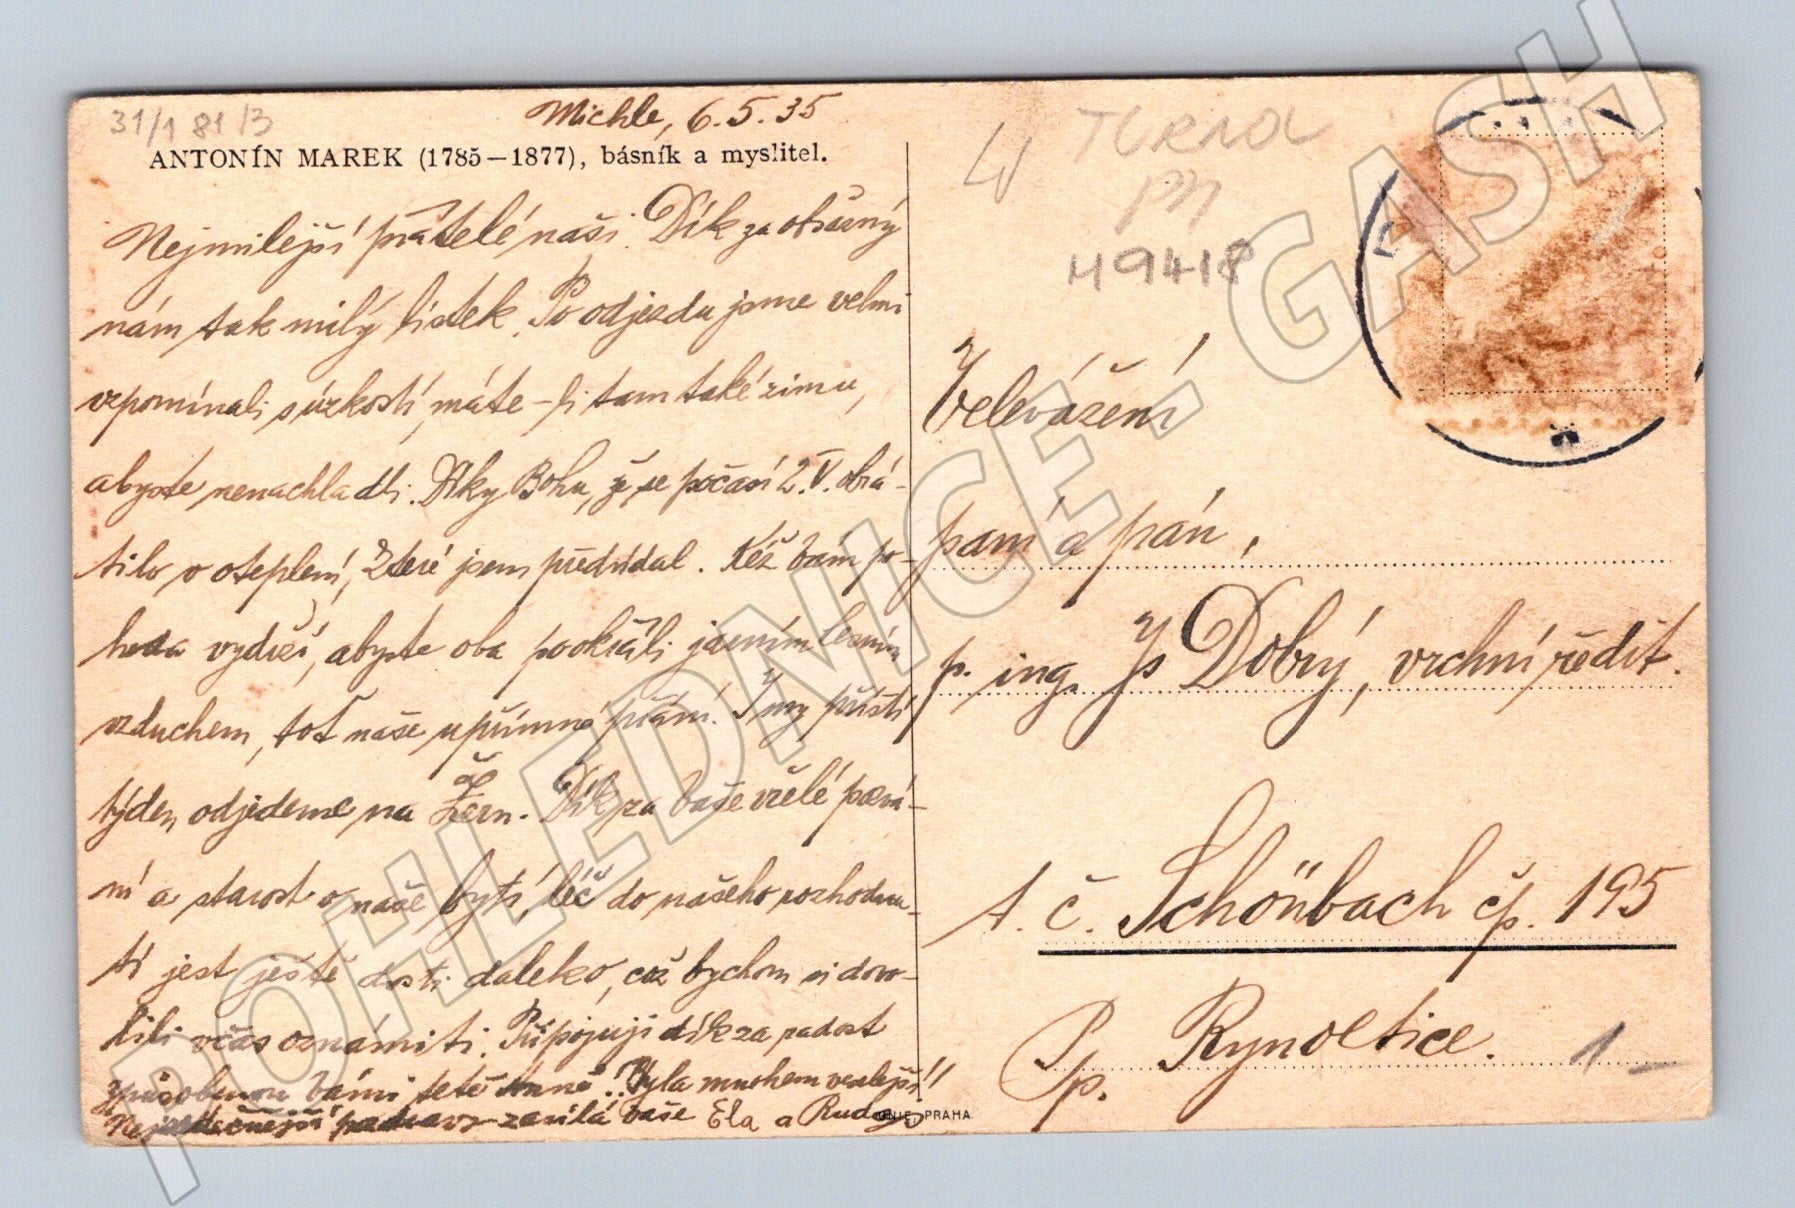 31/1 81 /3
Michle, 6.5.35
ANTONÍN MAREK (1785—1877), básník a myslitel.
Nejmilejší přátelé naši. Dík za obšírný
nám tak milý lístek. Po odjezdu jsme velmi
vzpomínali s úzkostí, máte-li tam také zimu,
abyste nenachladli. Díky Bohu, že se počasí 2.V. obrá-
tilo v oteplení, které jsem předvídal. Kéž Vám po-
hoda vydrží, abyste oba pookřáli jarním lesním
vzduchem, toť naše upřímné přání. I my příští
týden odjedeme na Žern. Dík za Vaše vřelé pozvá-
ní a starost o naše bytí, leč do našeho rozhodnu-
tí jest ještě dosti daleko, což bychom si dovo-
lili včas oznámiti. Připojuji dík za radost
způsobenou Vámi tetě Anně. Byla mnohem veselejší!!
Nejsrdečnější pozdravy zasílá Vaše Ela a Rudolf
UNIE, PRAHA
TURNOV
H 9418
Velevážení
paní a pán,
p. ing. Dobrý, vrchní ředit.
t. č. Schönbach čp. 195
Pp. Rynoltice.
1
POHLEDNICE - GASH